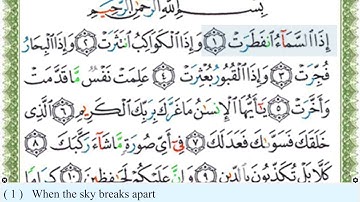 بِسْمِ اللَّهِ الرَّحْمَٰنِ الرَّحِيمِ
إِذَا السَّمَاءُ انفَطَرَتْ ١ وَإِذَا الْكَوَاكِبُ انتَثَرَتْ ٢ وَإِذَا الْبِحَارُ
فُجِّرَتْ ٣ وَإِذَا الْقُبُورُ بُعْثِرَتْ ٤ عَلِمَتْ نَفْسٌ مَّا قَدَّمَتْ
وَأَخَّرَتْ ٥ يَٰأَيُّهَا الْإِنسَٰنُ مَا غَرَّكَ بِرَبِّكَ الْكَرِيمِ ٦ الَّذِي
خَلَقَكَ فَسَوَّىٰكَ فَعَدَلَكَ ٧ فِي أَيِّ صُورَةٍ مَّا شَاءَ رَكَّبَكَ ٨
كَلَّا بَلْ تُكَذِّبُونَ بِالدِّينِ ٩ وَإِنَّ عَلَيْكُمْ لَحَٰفِظِينَ ١٠
( 1 ) When the sky breaks apart